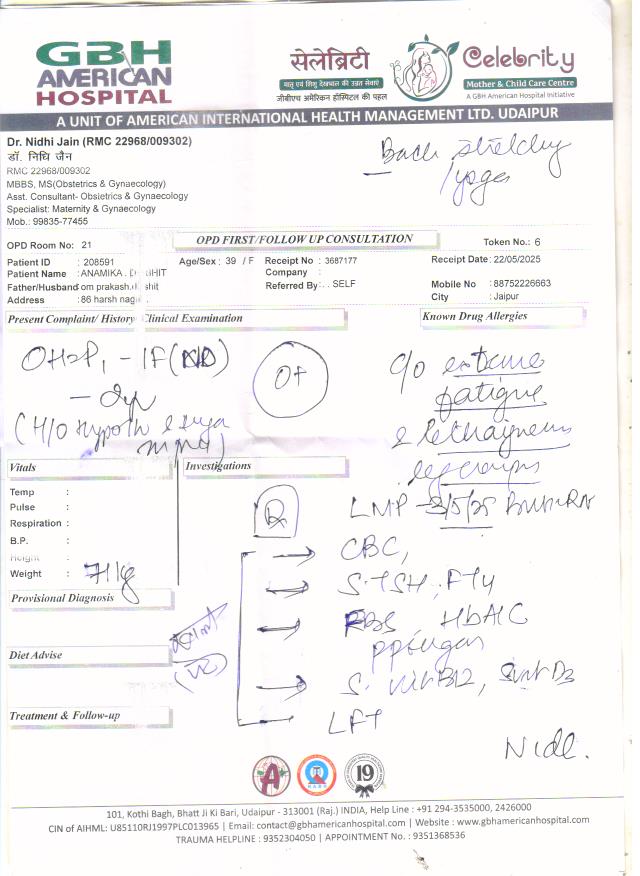 GBH
AMERICAN
HOSPITAL
सेलेब्रिटी
मातृ एवं शिशु देखभाल की उन्नत सेवाएं
जीबीएच अमेरिकन हॉस्पिटल की पहल
Celebrity
Mother & Child Care Centre
A GBH American Hospital Initiative
A UNIT OF AMERICAN INTERNATIONAL HEALTH MANAGEMENT LTD. UDAIPUR
Dr. Nidhi Jain (RMC 22968/009302)
डॉ. निधि जैन
RMC 22968/009302
MBBS, MS(Obstetrics & Gynaecology)
Asst. Consultant- Obstetrics & Gynaecology
Specialist: Maternity & Gynaecology
Mob.: 99835-77455
Back
/yoges
OPD Room No: 21
OPD FIRST/FOLLOW UP CONSULTATION
Token No.: 6
Patient ID : 208591 Age/Sex : 39 / F Receipt No : 3687177 Receipt Date: 22/05/2025
Patient Name : ANAMIKA Company :
Father/Husband: om prakash Referred By: . . SELF Mobile No : 88752226663
Address : 86 harsh City : Jaipur
Present Complaint/ History Clinical Examination
Known Drug Allergies
O+
c/o extreme
fatigue
&
leg cramps
(H/O
Vitals
Investigations
Temp :
Pulse :
Respiration :
B.P. :
Height :
Weight : 71 kg
Rx
LMP - 3/5/25
CBC,
S. TSH, FT4
FBS HbA1C
PP sugar
S. Vit B12, S. Vit D3
LFT
Provisional Diagnosis
Diet Advise
Treatment & Follow-up
Nidhi
NABH
19
101, Kothi Bagh, Bhatt Ji Ki Bari, Udaipur - 313001 (Raj.) INDIA, Help Line : +91 294-3535000, 2426000
CIN of AIHML: U85110RJ1997PLC013965 | Email: contact@gbhamericanhospital.com | Website : www.gbhamericanhospital.com
TRAUMA HELPLINE : 9352304050 | APPOINTMENT No. : 9351368536